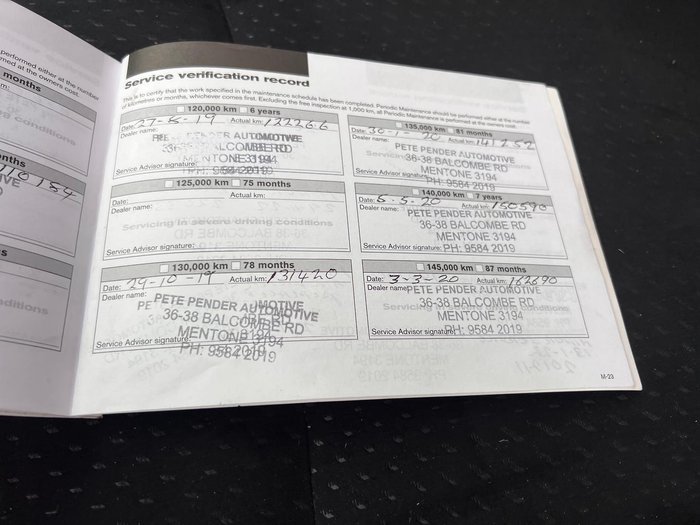 performed either at the number
med at the owners cost.
months
m:
conditions
nths
110154
VE
s
Service verification record
This is to certify that the work specified in the maintenance schedule has been completed. Periodic Maintenance should be performed either at the number
of kilometres or months, whichever comes first. Excluding the free inspection at 1,000 km, all Periodic Maintenance is performed at the owners cost.
120,000 km 6 years
Date: 27-5-19 Actual km: 122266
Dealer name:
PETE PENDER AUTOMOTIVE
36-38 BALCOMBE RD
MENTONE 3194
Service Advisor signature:
PH: 9584 2019
125,000 km 75 months
Date: Actual km:
Dealer name:
Servicing in severe driving conditions
Service Advisor signature:
130,000 km 78 months
Date: 29-10-19 Actual km: 131420
Dealer name:
PETE PENDER AUTOMOTIVE
36-38 BALCOMBE RD
MENTONE 3194
Service Advisor signature:
PH: 9584 2019
135,000 km 81 months
Date: 30-1-20 Actual km: 141252
Dealer name:
PETE PENDER AUTOMOTIVE
36-38 BALCOMBE RD
MENTONE 3194
Service Advisor signature:
PH: 9584 2019
140,000 km 7 years
Date: 6-5-20 Actual km: 150590
Dealer name:
PETE PENDER AUTOMOTIVE
36-38 BALCOMBE RD
MENTONE 3194
Service Advisor signature:
PH: 9584 2019
145,000 km 87 months
Date: 3-3-20 Actual km: 162690
Dealer name:
PETE PENDER AUTOMOTIVE
36-38 BALCOMBE RD
MENTONE 3194
Service Advisor signature:
PH: 9584 2019
M-23